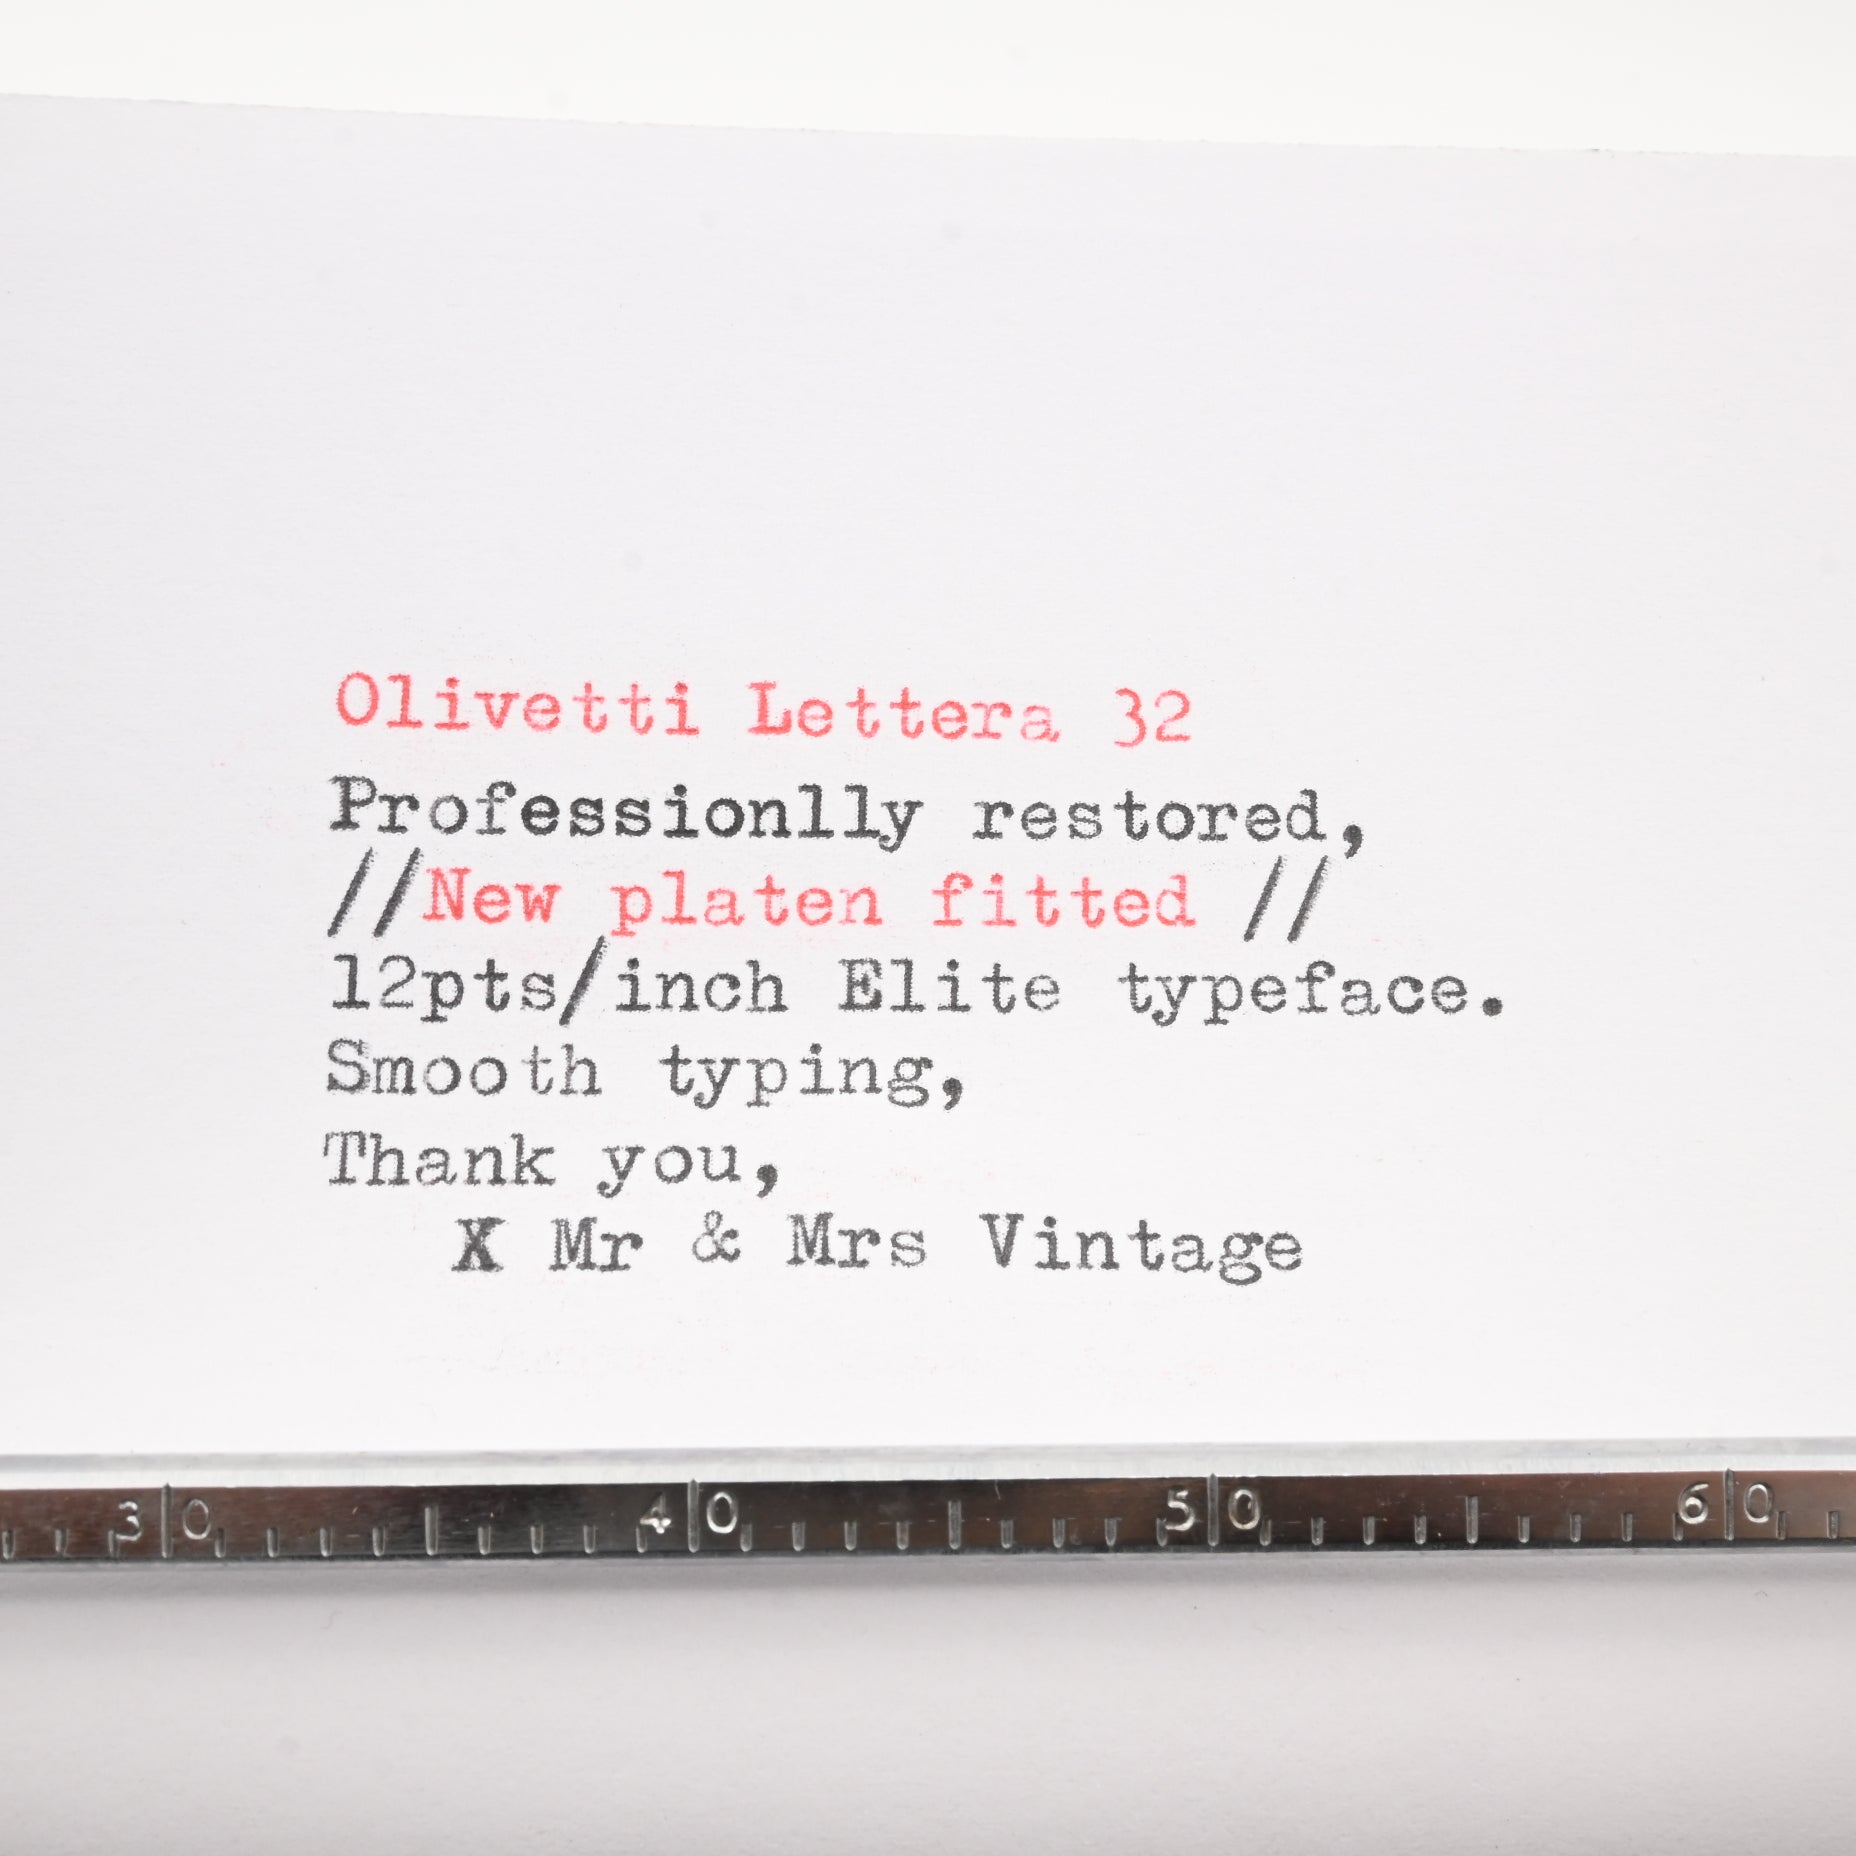 Olivetti Lettera 32
Professionlly restored,
//New platen fitted //
12pts/inch Elite typeface.
Smooth typing,
Thank you,
X Mr & Mrs Vintage
30 40 50 60